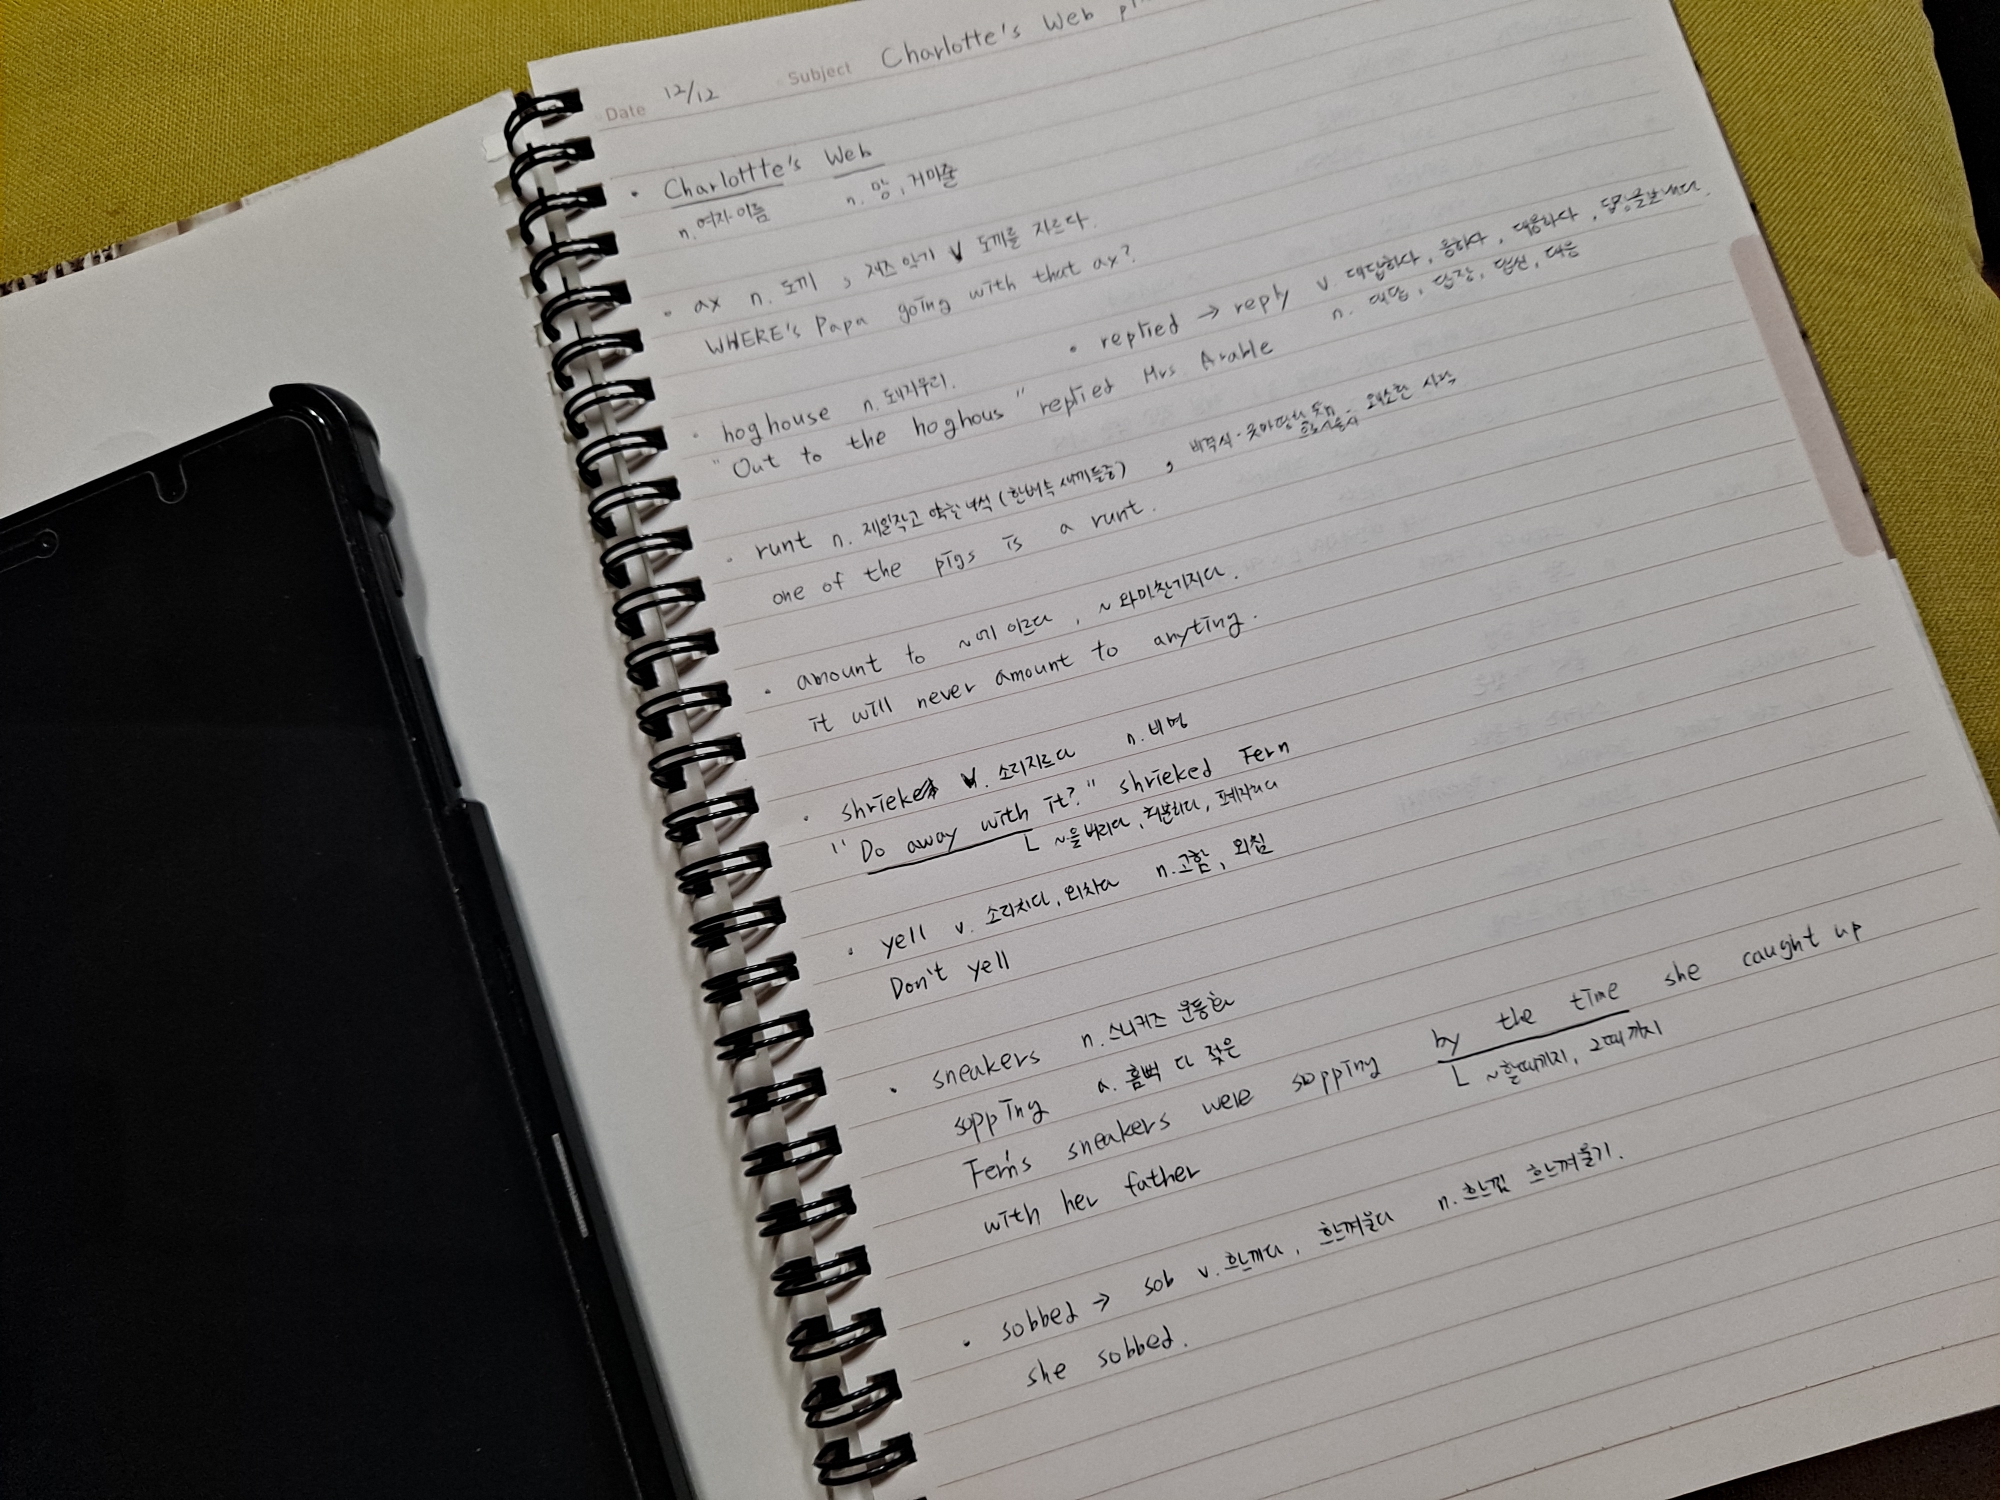 Date 12/12 Subject Charlotte's Web
• Charlottte's Web
n. 여자이름 n. 망, 거미줄
• ax n. 도끼 , 재즈 악기 V 도끼를 자르다.
WHERE's Papa going with that ax?
• replied → reply v. 대답하다, 응하다, 대응하다, 답장을보내다.
n. 대답, 답장, 답신, 대응
• hoghouse n. 돼지우리.
"Out to the hoghous" replied Mrs Arable
• runt n. 제일작고 약한녀석 (한배속 새끼들중) , 왜소한 사람
one of the pigs is a runt.
• amount to ~에 이르다, ~와마찬가지다.
it will never amount to anyting.
• shrieke v. 소리지르다 n. 비명
"Do away with it?" shrieked Fern
└ ~을버리다, 처분하다, 폐지하다
• yell v. 소리치다, 외치다 n. 고함, 외침
Don't yell
• sneakers n. 스니커즈 운동화
sopping a. 흠뻑 다 젖은
Fern's sneakers were sopping by the time she caught up
└ ~할때까지, 그때까지
with her father
• sobbed → sob v. 흐느끼다, 흐느껴울다 n. 흐느낌 흐느껴울기.
she sobbed.